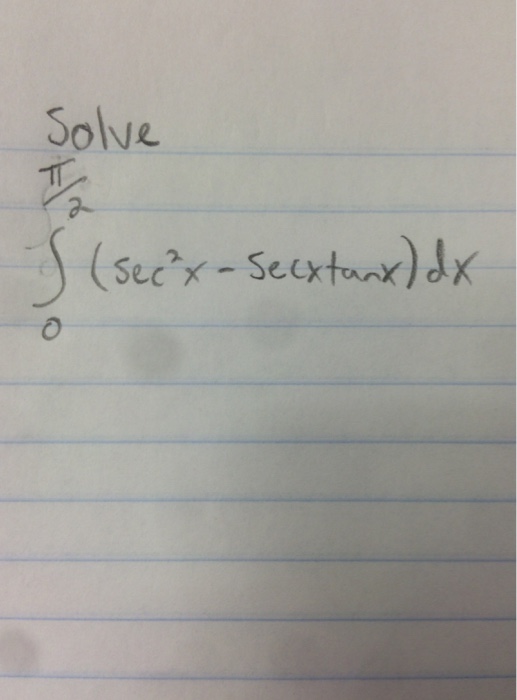 Solve
π/2
∫ (sec²x - secxtanx) dx
0